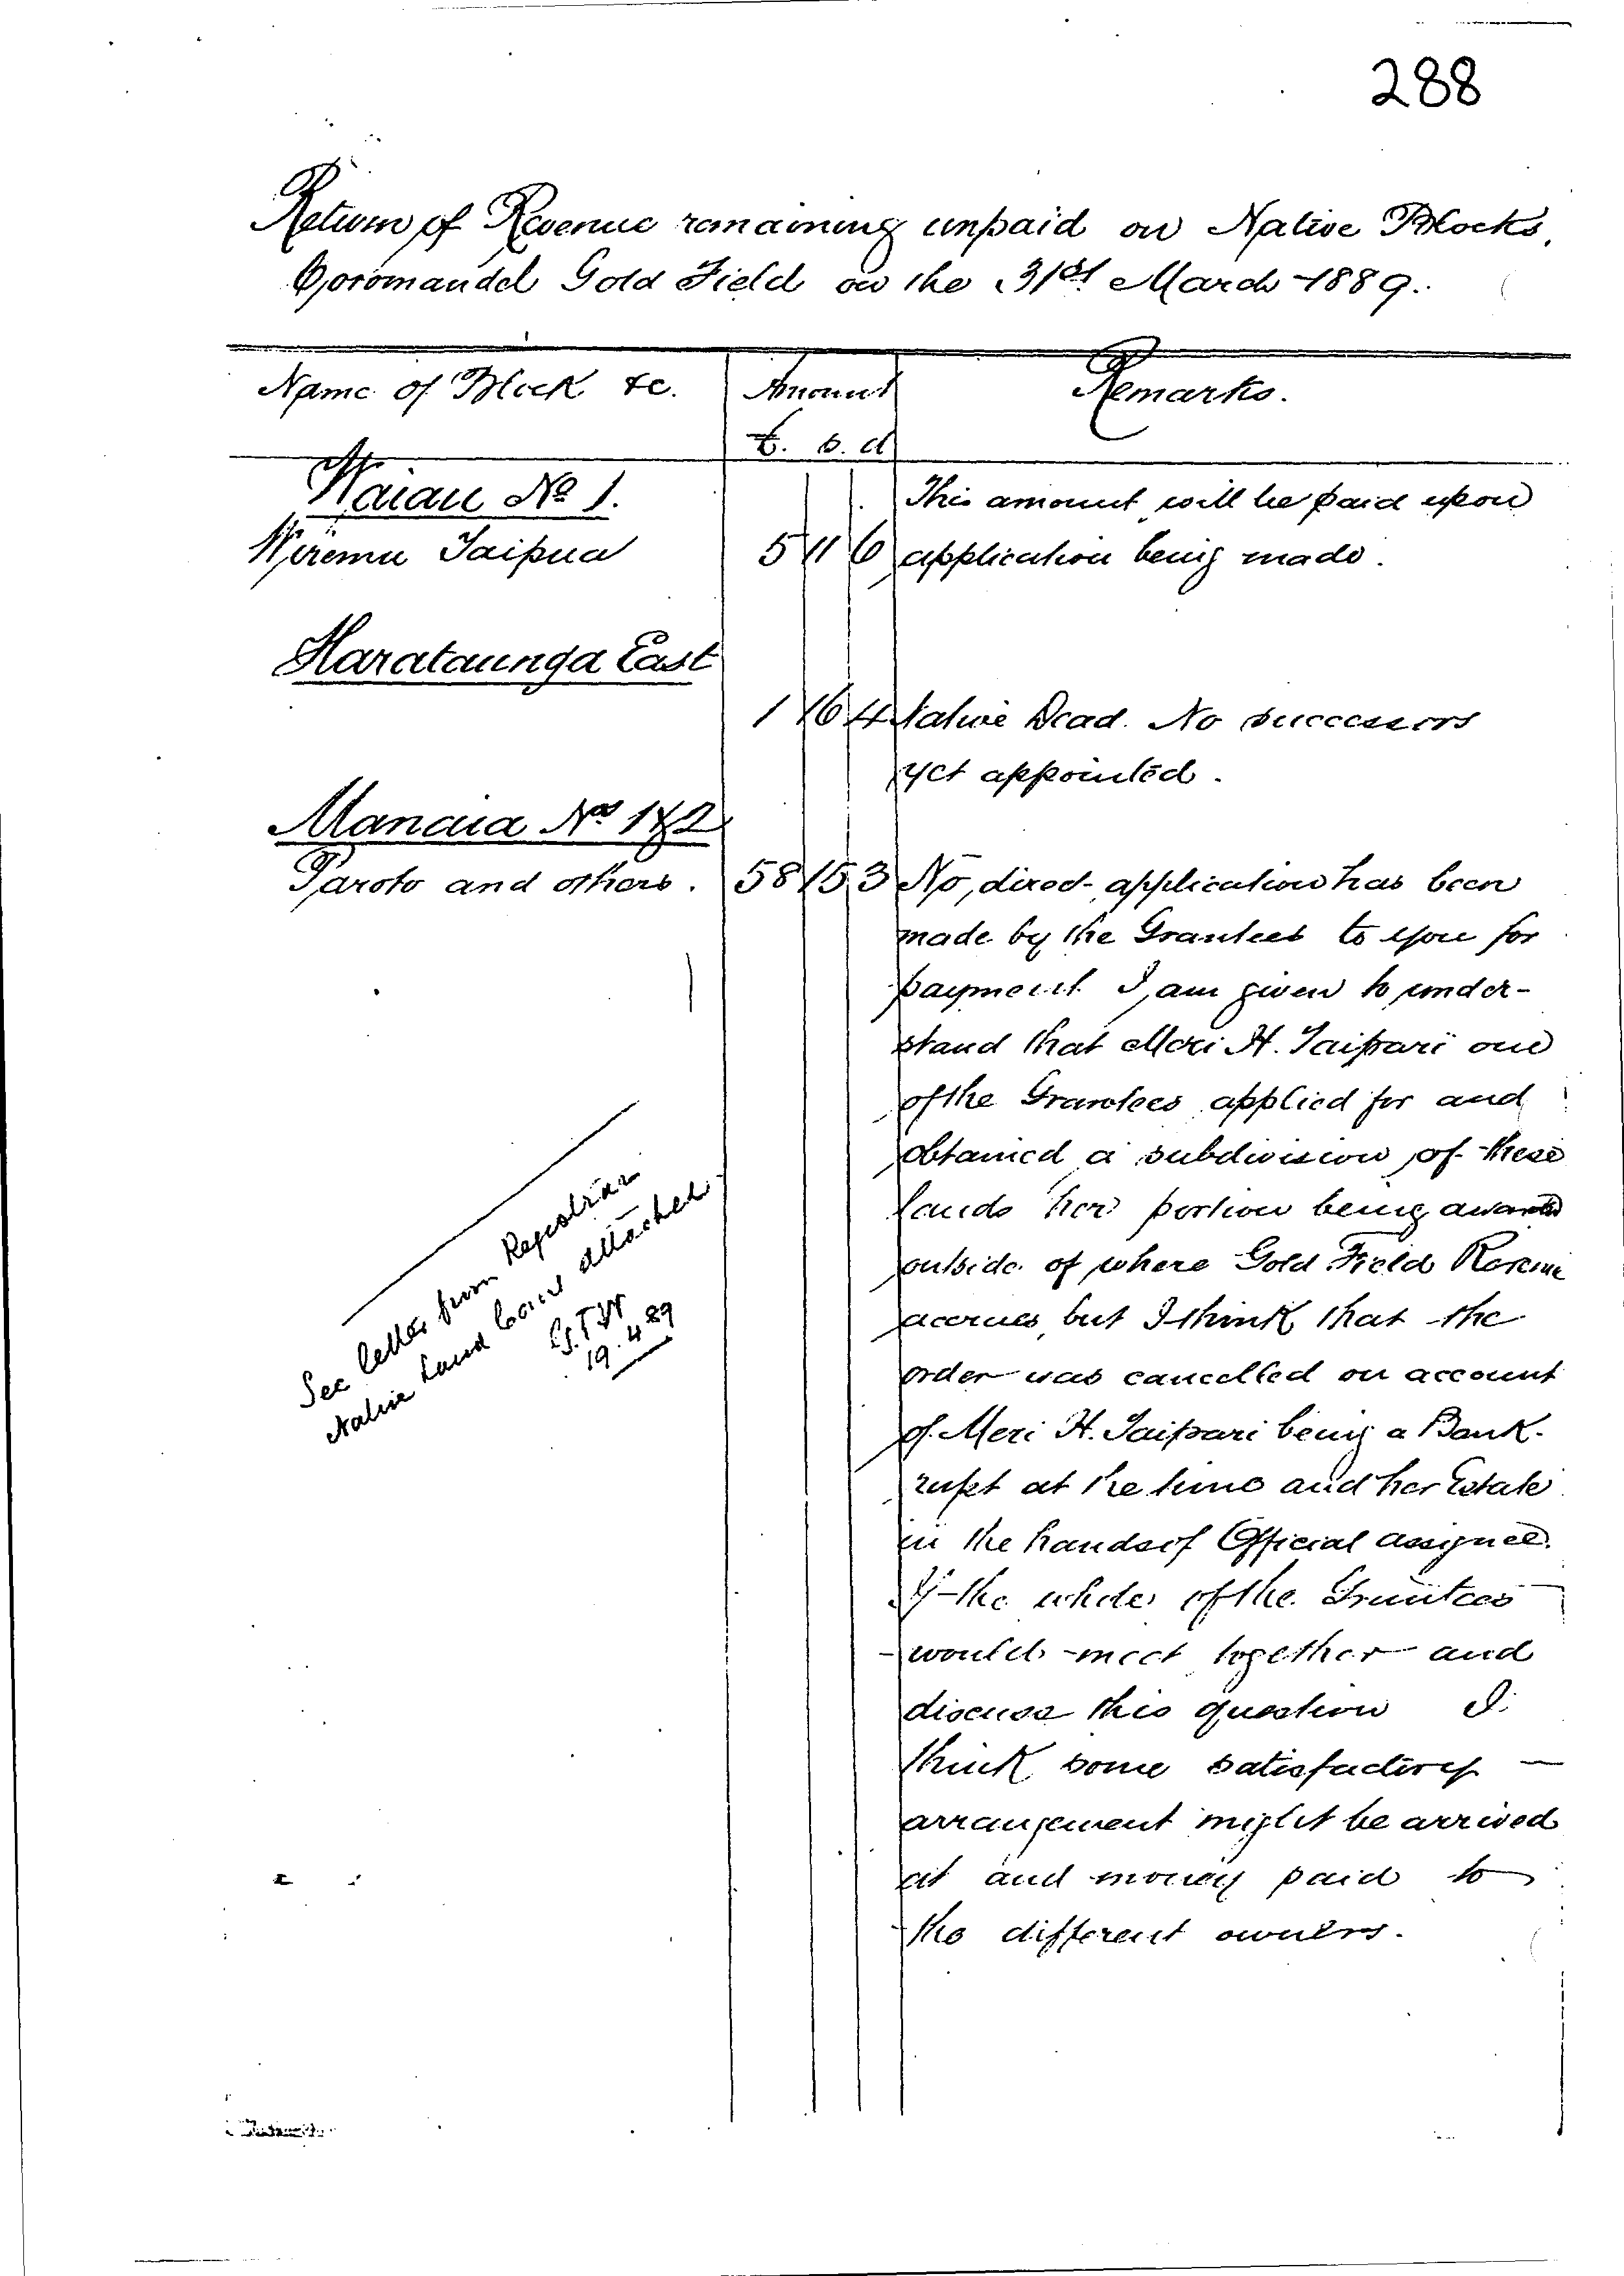 288
Return of Revenue remaining unpaid on Native Blocks,
Coromandel Gold Field on the 31st March 1889.
Name of Block &c. Amount Remarks.
£. s. d
Waiau No 1. This amount will be paid upon
Wiremu Taipua 5 11 6 application being made.
Harataunga East
1 16 4 Native Dead. No successors
yet appointed.
Manaia Nos 1 & 2
Paroto and others. 58 15 3 No direct application has been
made by the Grantees to you for
payment I am given to under-
stand that Meri H. Taipari one
of the Grantees applied for and
obtained a subdivision of these
lands her portion being awarded
outside of where Gold Field Revenue
accrues but I think that the
order was cancelled on account
of Meri H. Taipari being a Bank-
rupt at the time and her Estate
in the hands of Official Assignee.
If the whole of the Grantees
would meet together and
discuss this question I
think some satisfactory
arrangement might be arrived
at and money paid to
the different owners.
See letter from Registrar
Native Land Court attached
19.4.89